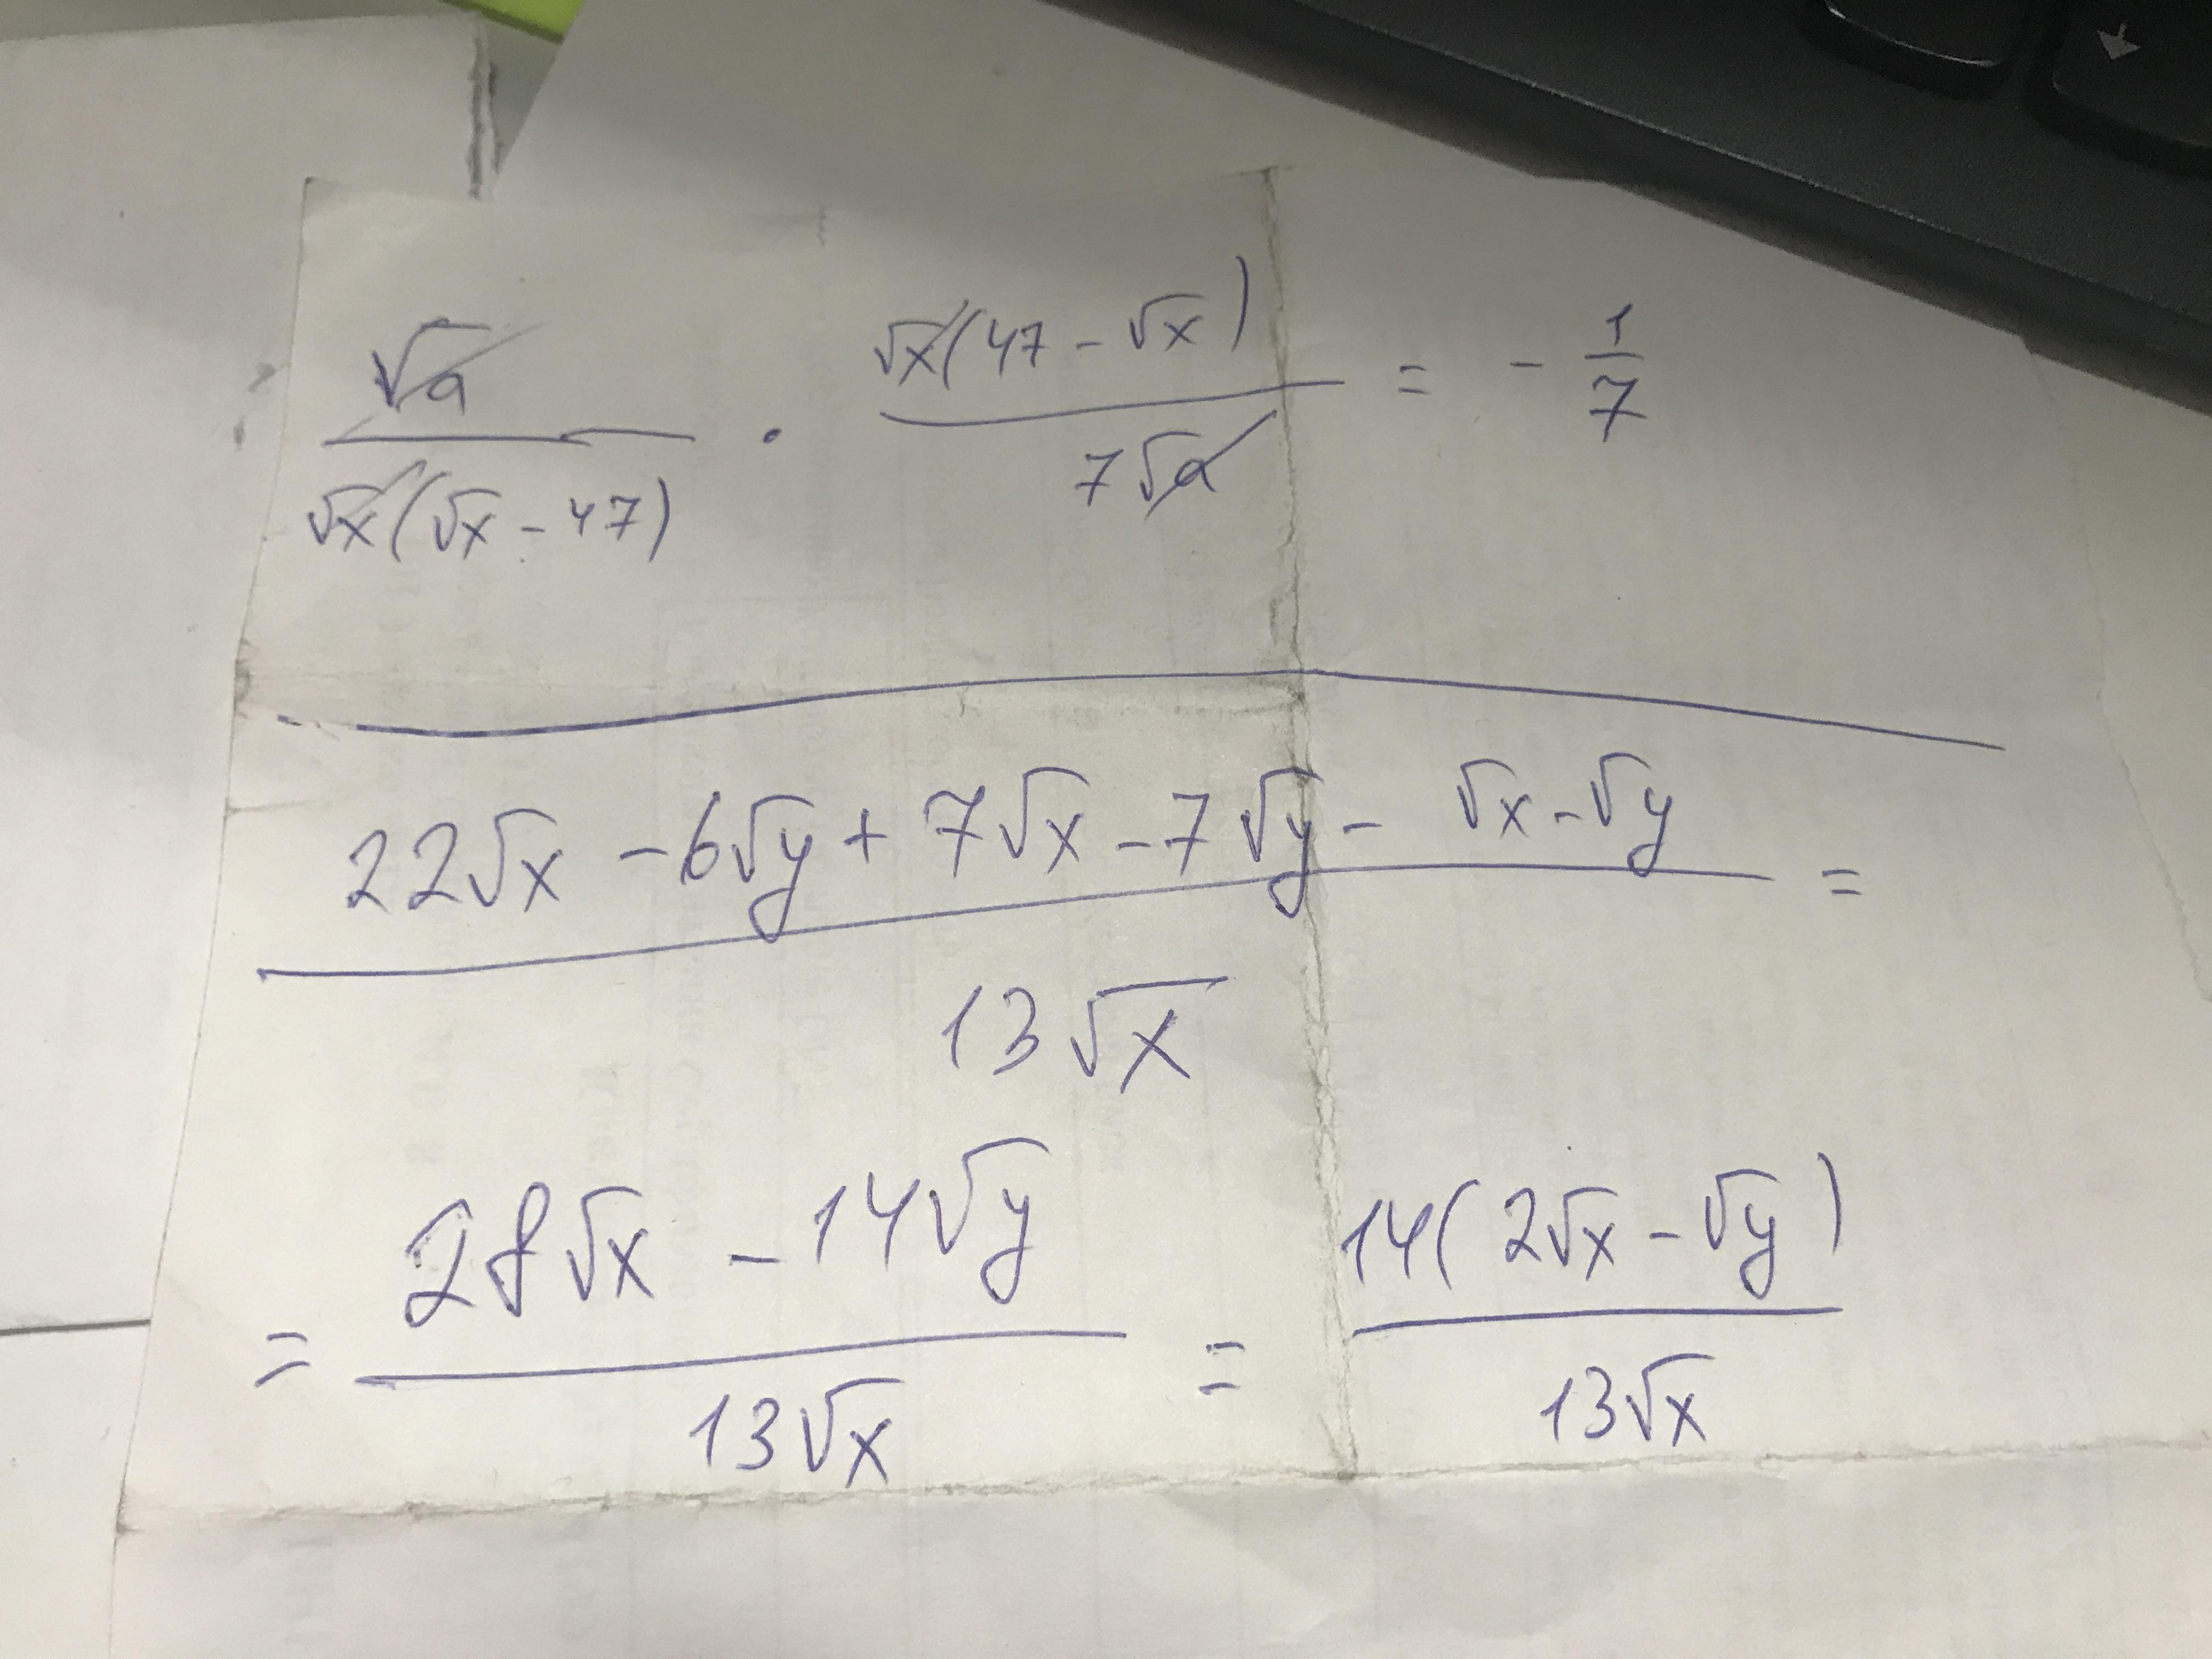 √a / √x(√x - 47) · √x(47 - √x) / 7√a = - 1/7
22√x - 6√y + 7√x - 7√y - √x - √y / 13√x =
= 28√x - 14√y / 13√x = 14(2√x - √y) / 13√x